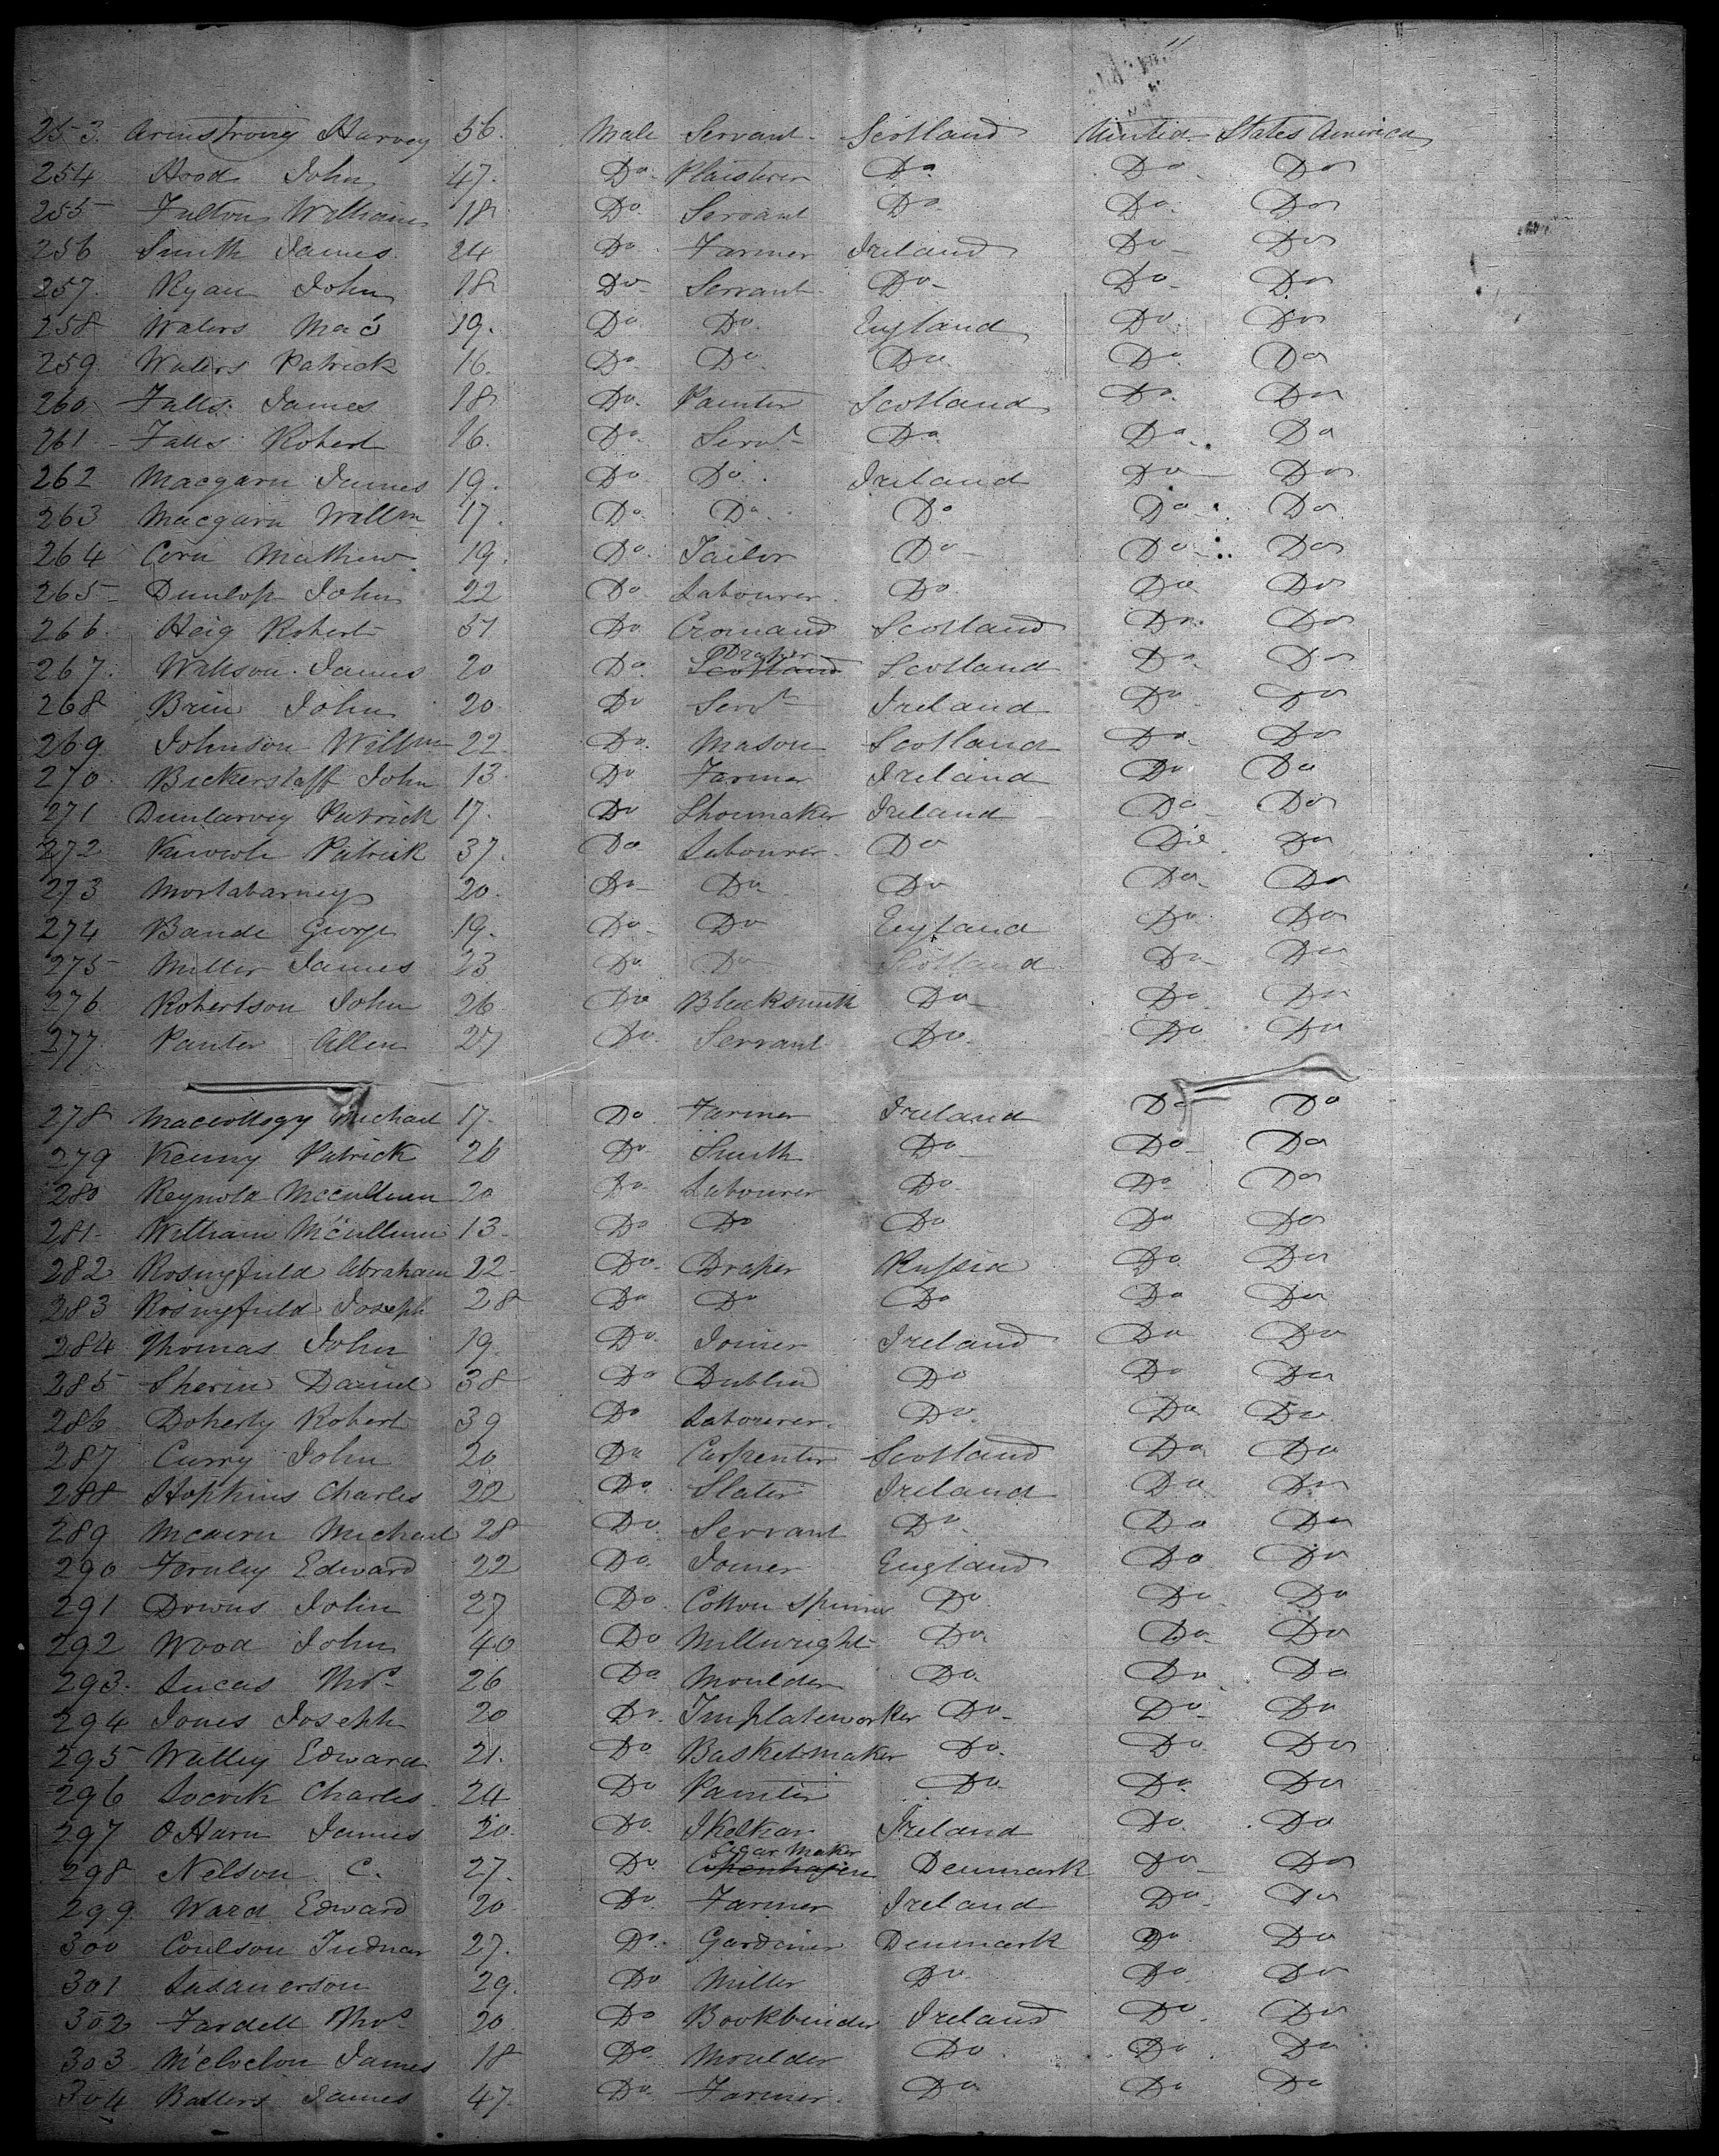 253. Armstrong Harvey 56. Male Servant Scotland United States America
254 Hood John 47. Do. Plaisterer Do. Do. Do
255 Fulton William 18. Do. Servant Do. Do. Do
256 Smith James 24 Do. Farmer Ireland Do Do
257. Ryan John 18 Do Servant Do Do Do
258 Waters 19. Do. Do. England Do. Do
259 Waters Patrick 16. Do. Do. Do. Do. Do
260 Falls James 18 Do. Painter Scotland Do. Do
261 Falls Robert 16. Do. Servt Do. Do. Do
262 Macgarn James 19. Do. Do. Ireland Do Do
263 Macgarn Willm 17. Do. Do. Do Do Do
264 Corn Mathew 19. Do. Tailor Do Do Do
265 Dunlop John 22 Do. Labourer. Do. Do Do
266. Heig Robert Do Scotland Do. Do
267. Willson James 20 Do. Draper Scotland Do Do
268 Brin John 20 Do Servt Ireland Do Do
269 Johnson Willm 22. Do. Mason Scotland Do Do
270 Bickerstaff John 13. Do Farmer Ireland Do Do
271 Dunlarvey Patrick 17. Do Shoemaker Ireland Do Do
272 Patrick 37. Do Labourer Do Do Do
273 Mortabarney 20. Do Do Do Do Do
274 Bande George 19. Do Do England Do Do
275 Miller James 23 Do. Do Scotland Do Do
276. Robertson John 26 Do Blacksmith Do Do Do
277. Panter Allen 27 Do. Servant Do. Do Do
278 Michael 17. Do. Farmer Ireland Do Do
279 Kenny Patrick 26 Do. Smith Do Do Do
280 Reynold Mccullum 20 Do. Labourer Do Do Do
281 William Mcullum 13 Do Do Do Do Do
282 Rosingfield Abraham 22 Do. Draper Russia Do Do
283 Rosingfield Joseph 28 Do Do Do Do Do
284 Thomas John 19. Do. Joiner Ireland Do Do
285 Sherin Daniel 38 Do Dublin Do Do Do
286 Doherty Robert 39 Do Labourer. Do. Do Do
287 Curry John 20 Do Carpenter Scotland Do Do
288 Hopkins Charles 22 Do. Slater Ireland Do Do
289 Mcairn Michael 28 Do. Servant Do. Do Do
290 Fernley Edward 22 Do. Joiner England Do Do
291 Downs John 27 Do. Cotton Spinner Do. Do Do
292 Wood John 40 Do Millwright Do. Do Do
293. Lucas Thos 26 Do. Moulder Do. Do Do
294 Jones Joseph 20 Do. Tinplateworker Do Do Do
295 Walley Edward 21. Do Basketmaker Do. Do Do
296 Charles 24 Do Painter Do Do. Do
297 OHarn James 20. Do. Ireland Do. Do
298 Nelson C. 27. Do. Cigar Maker Copenhagen Denmark Do Do
299 Ward Edward 20 Do. Farmer Ireland Do Do
300 Coulson 27. Do. Gardiner Denmark Do Do
301 Lasanerson 29. Do Miller Do. Do Do
302 Fardell Thos 20. Do Bookbinder Ireland Do. Do
303 James 18 Do. Moulder Do. Do. Do
304 Batters James 47. Do. Farmer. Do. Do Do